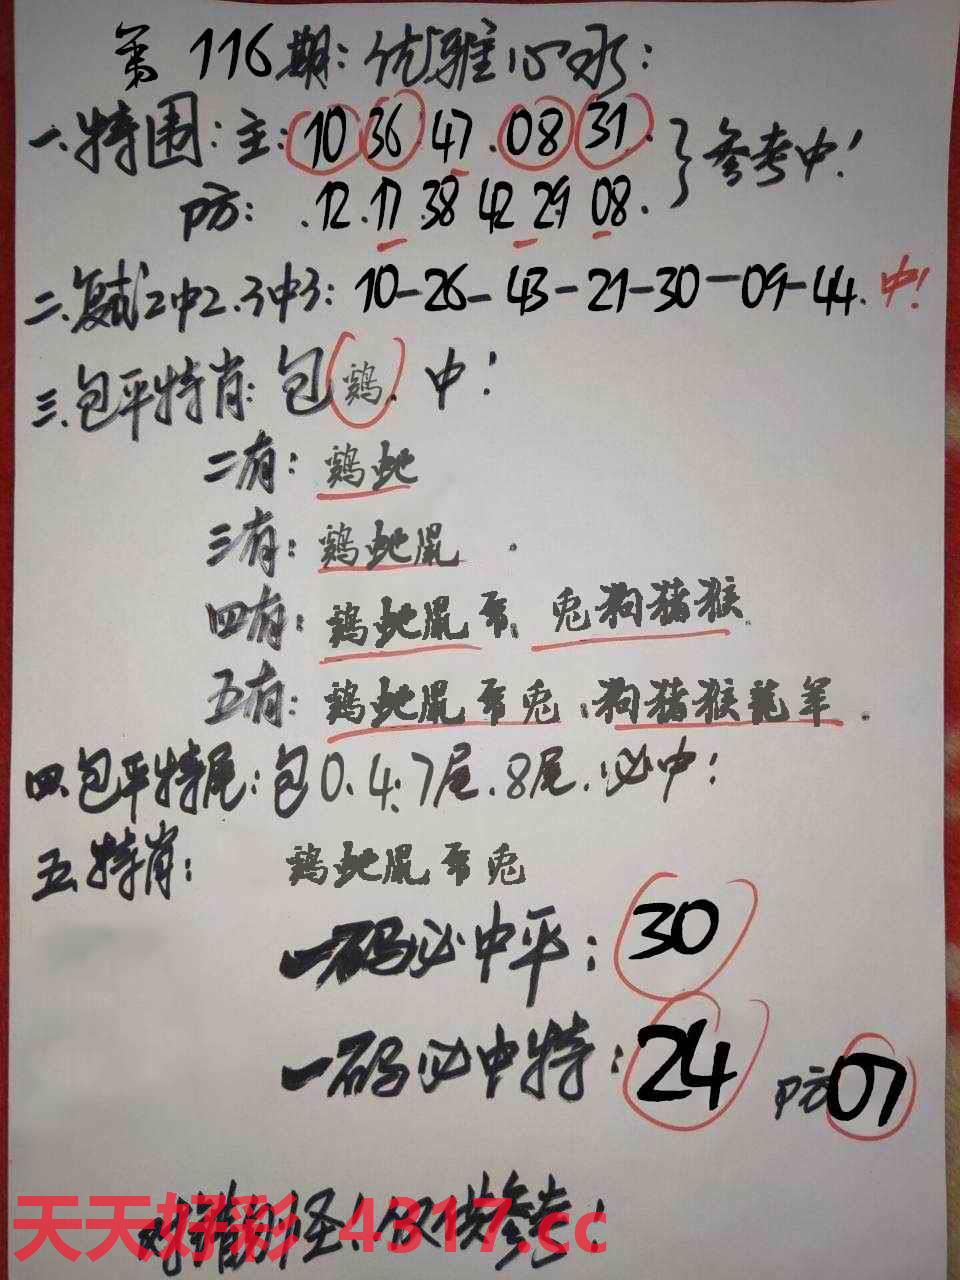 第116期:优雅心水:
一.特围:主:10 36 47.08 31.
防:.12.17.38 42 29 08.
}参考中!
二.复式2中2.3中3:10-26-43-21-30-09-44.中!
三.包平特肖:包鸡.中!
二有:鸡蛇
三有:鸡蛇鼠.
四有:鸡蛇鼠马.兔狗猪猴
五有:鸡蛇鼠马兔.狗猪猴龍羊.
四.包平特尾:包0.4.7尾.8尾.必中!
五.特肖:鸡蛇鼠马兔
一码必中平:30
一码必中特:24 防07
对错勿怪!仅供参考!
天天好彩 4317.cc